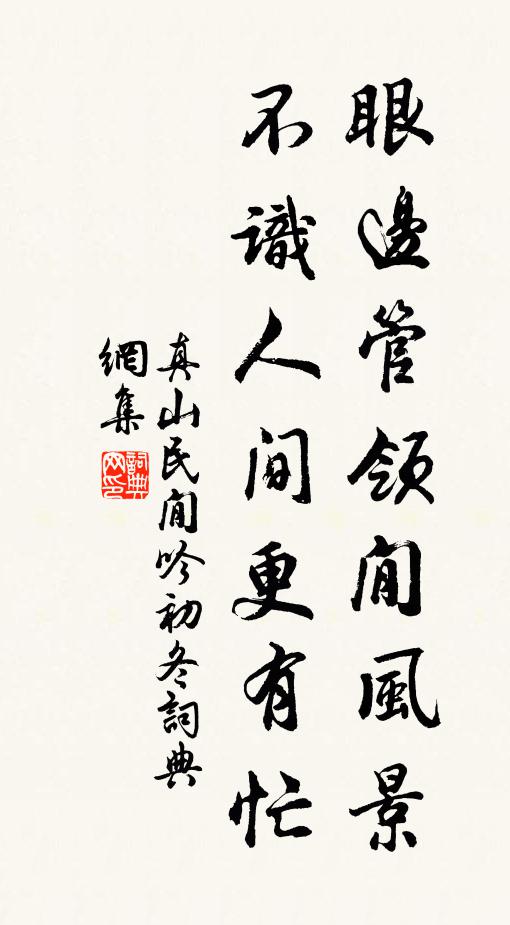 眼邊管領閒風景
不識人間更有忙
真山民閒吟初冬詞典
網集
詞典網印